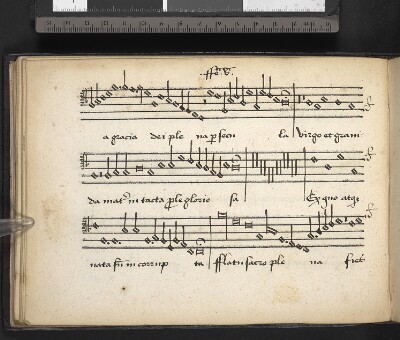 a gracia dei ple na p secu la virgo et grani
da mat' in tacta ple glorio sa Ex quo atq
nata in corrup ta fflatu sacro ple na fiet